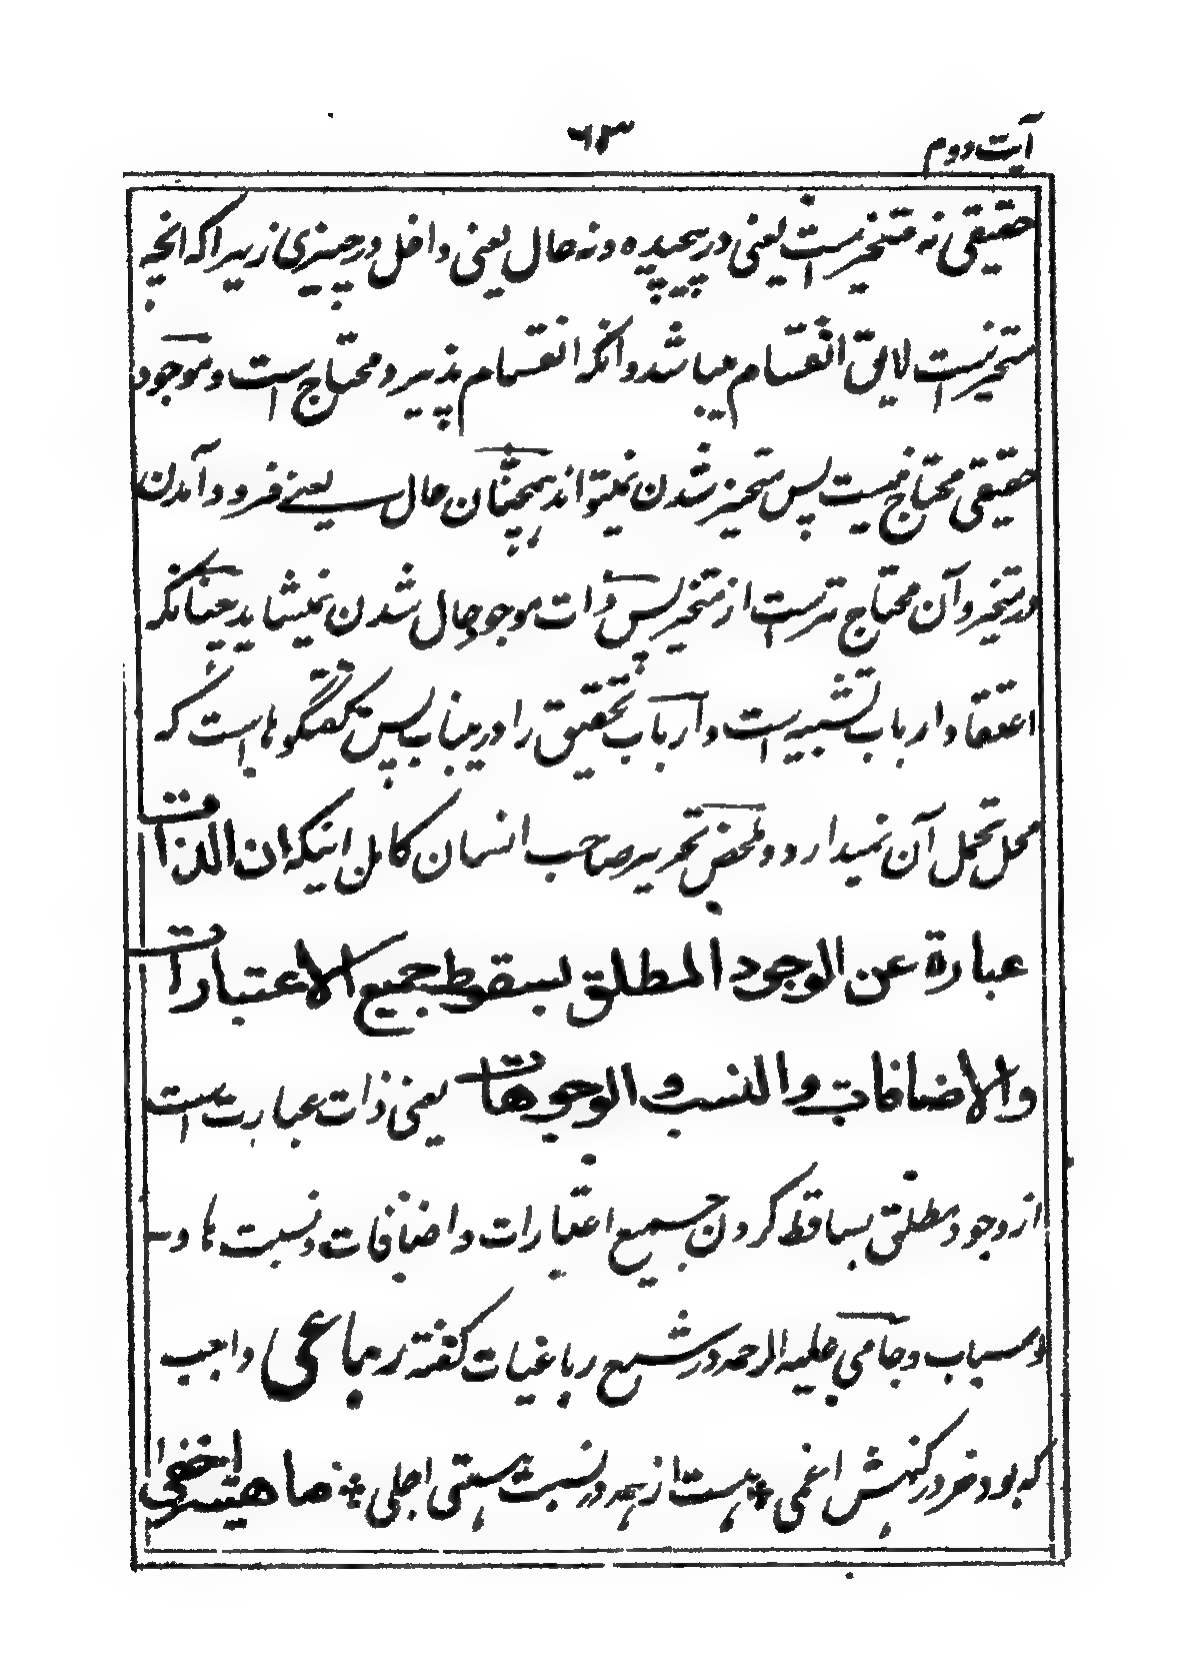 آیت دوم
۶۳
حقیقی نه متحیز ست یعنی در پیچیده و نه حال یعنی داخل در چیزی زیرا که انچه
متحیز نیست لایق انقسام میباشد و انکه انقسام پذیر و محتاج است و موجود
حقیقی محتاج نیست پس متحیز شدن نمیتواند همچنان حال یعنے فرود آمدن
در متحیز و آن محتاج ترست از متحیز پس ذات موجود حال شدن نمیشاید چنانکه
اعتقاد ارباب تشبیه است و ارباب تحقیق را درینباب پس گفتگوها است که
محل تحمل آن نمیدارد و ملخص تحریر صاحب انسان کامل اینکه ان الذات
عبارة عن الوجود المطلق بسقوط جمیع الاعتبارات
والاضافات والنسب والوجوهات یعنی ذات عبارت است
از وجود مطلق بساقط کردن جمیع اعتبارات و اضافات و نسبت ها و
اسباب و جامی علیه الرحمه در شرح رباعیات گفته رباعی واجب
که بود خرد ز کنهش اعمی * هست از همه در نسبت هستی اجلی * ماهیته اخفی